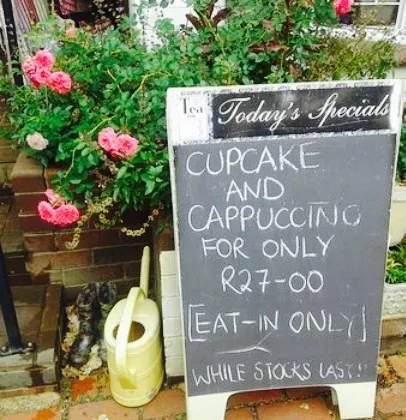 Tea
Today's Specials
CUPCAKE
AND
CAPPUCCINO
FOR ONLY
R27-00
[EAT-IN ONLY]
WHILE STOCKS LAST!